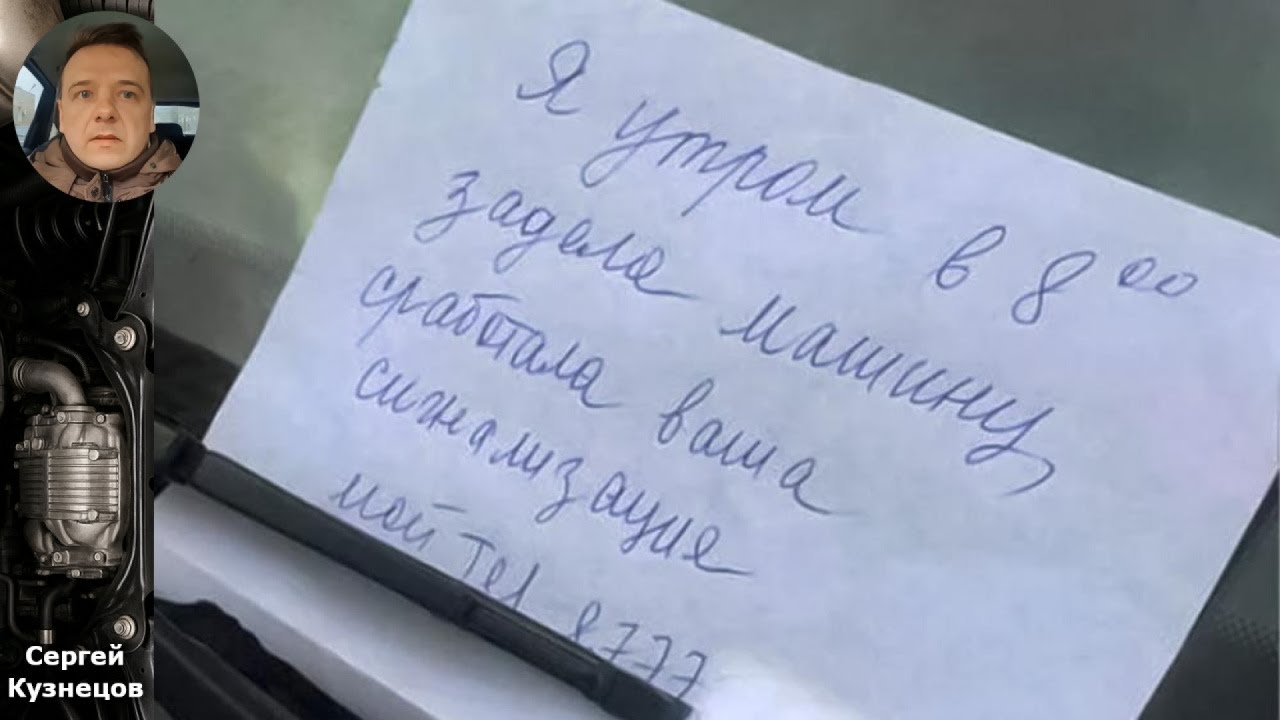 Я утром в 8 00
задела машину,
сработала ваша
сигнализация
мой тел 8777
Сергей
Кузнецов